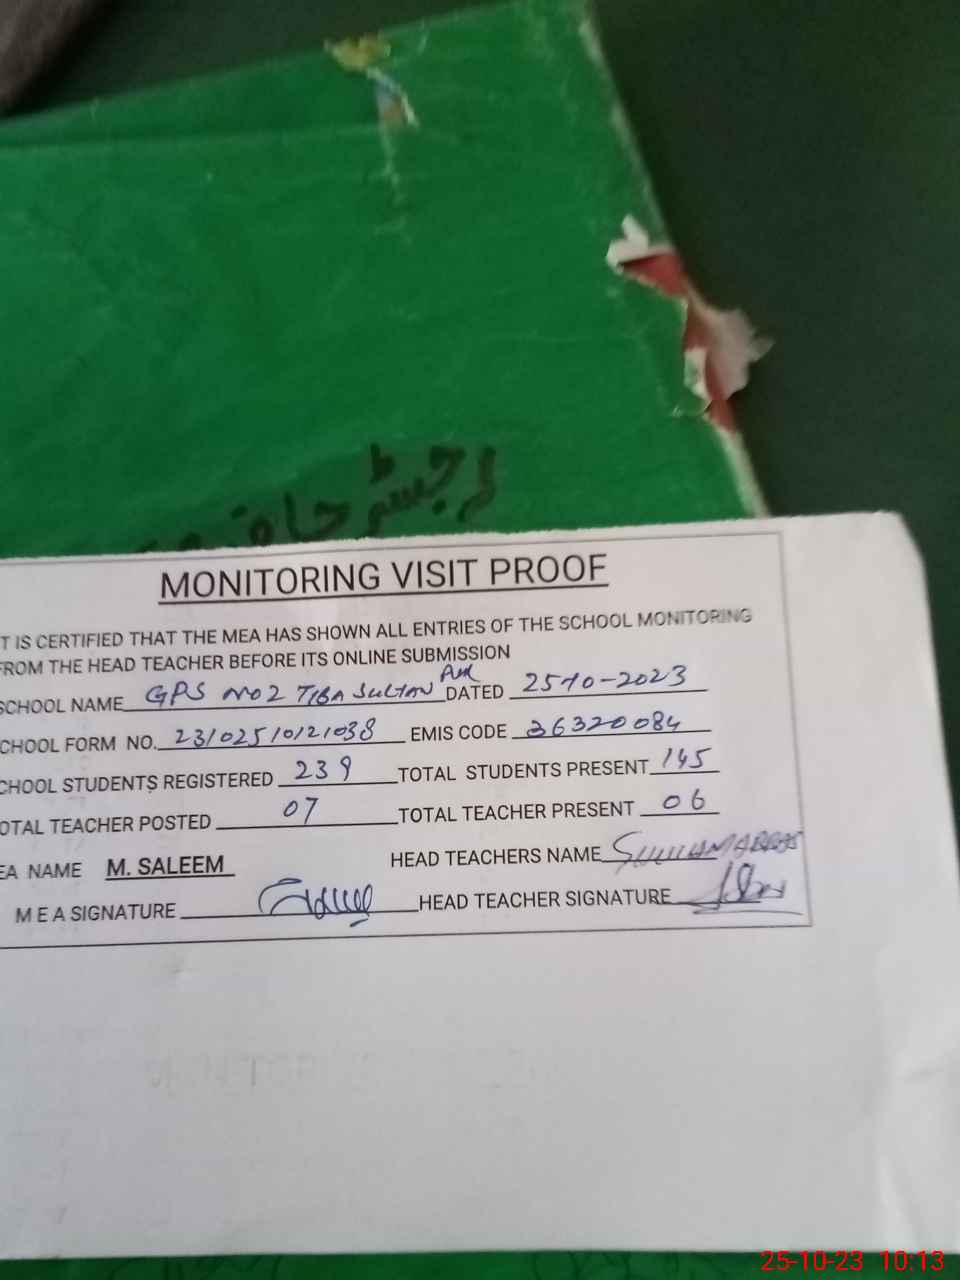 رجسٹر حاضری
MONITORING VISIT PROOF
T IS CERTIFIED THAT THE MEA HAS SHOWN ALL ENTRIES OF THE SCHOOL MONITORING
FROM THE HEAD TEACHER BEFORE ITS ONLINE SUBMISSION
SCHOOL NAME GPS NO2 TIBA SULTAN PUR DATED 25-10-2023
CHOOL FORM NO. 23102510121038 EMIS CODE 36320084
CHOOL STUDENTS REGISTERED 239 TOTAL STUDENTS PRESENT 145
OTAL TEACHER POSTED 07 TOTAL TEACHER PRESENT 06
EA NAME M. SALEEM HEAD TEACHERS NAME
M E A SIGNATURE HEAD TEACHER SIGNATURE
25-10-23 10:13